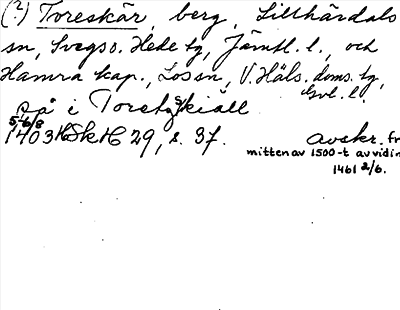 (?) Toreskär, berg, Lillhärdals
sn, Svegs o. Hede tg, Jämtl. l., och
Hamra kap., Los sn, V. Häls. doms. tg,
Gvl. l.
på i Toretzskiäll
5-6/8
1403 HSkH 29, s. 37.
Avskr. fr
mitten av 1500-t av vidim
1461 2/6.